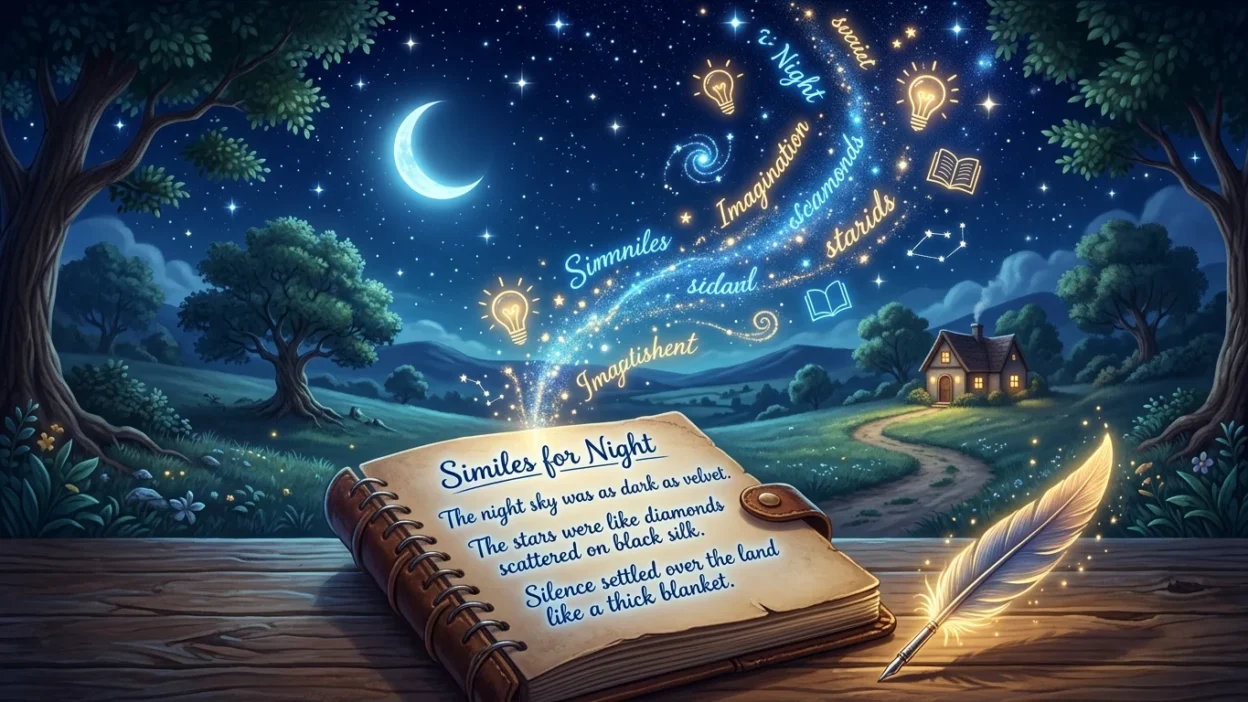 societ
Night
Imagination
scamonds
starids
Simmiles
sidaul
Imaptishent
Similes for Night
The night sky was as dark as velvet.
The stars were like diamonds
scattered on black silk.
Silence settled over the land
like a thick blanket.